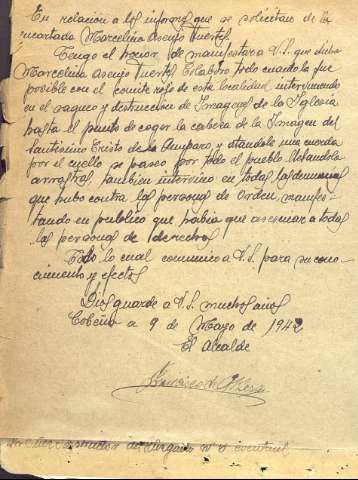 En relacion a los informes que se solicitan de la
encartada Marcelina Asenjo Puertas.
Tengo el honor de manifestar a V.S. que dicha
Marcelina Asenjo Puertas Colaboro todo cuanto la fue
posible con el comite rojo de esta localidad interviniendo
en el saqueo y destruccion de Imagenes de la Iglesia
hasta el punto de coger la cabeza de la Imagen del
santisimo Cristo de su Amparo, y atandole una cuerda
por el cuello se paseo por todo el pueblo llevandola
arrastras, tambien intervino en todas las denuncias
que hubo contra las personas de Orden, manifes-
tando en publico que habia que asesinar a todas
las personas de derechas
Todo lo cual comunico a V.S. para su cono-
cimiento y efectos
Dios guarde a V.S. muchos años
Cobeña a 9 de Mayo de 1942
El Alcalde